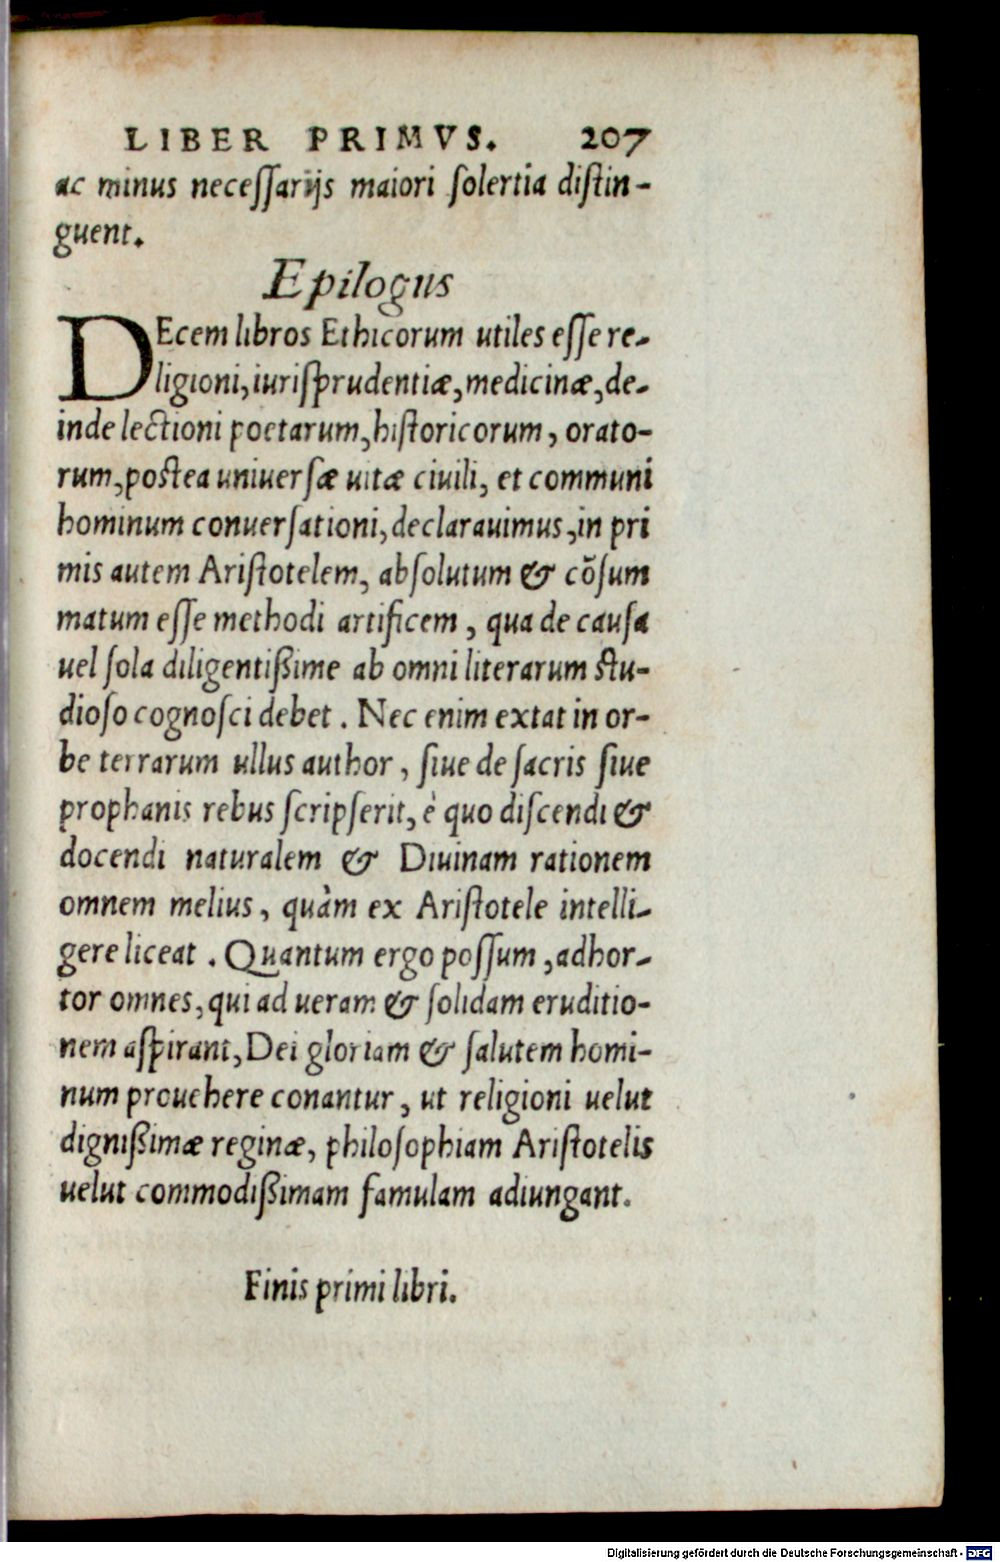 LIBER PRIMVS. 207
ac minus neceſſarijs maiori ſolertia diſtin-
guent.
Epilogus
DEcem libros Ethicorum utiles eſſe re-
ligioni, iuriſprudentiæ, medicinæ, de-
inde lectioni poetarum, hiſtoricorum, orato-
rum, poſtea uniuerſæ uitæ ciuili, et communi
hominum conuerſationi, declarauimus, in pri
mis autem Ariſtotelem, abſolutum & cõſum
matum eſſe methodi artificem, qua de cauſa
uel ſola diligentißime ab omni literarum ſtu-
dioſo cognoſci debet. Nec enim extat in or-
be terrarum ullus author, ſiue de ſacris ſiue
prophanis rebus ſcripſerit, è quo diſcendi &
docendi naturalem & Diuinam rationem
omnem melius, quàm ex Ariſtotele intelli-
gere liceat. Quantum ergo poſſum, adhor-
tor omnes, qui ad ueram & ſolidam eruditio-
nem aſpirant, Dei gloriam & ſalutem homi-
num prouehere conantur, ut religioni uelut
digniſsimæ reginæ, philoſophiam Ariſtotelis
uelut commodißimam famulam adiungant.
Finis primi libri.
Digitalisierung gefördert durch die Deutsche Forschungsgemeinschaft - DFG